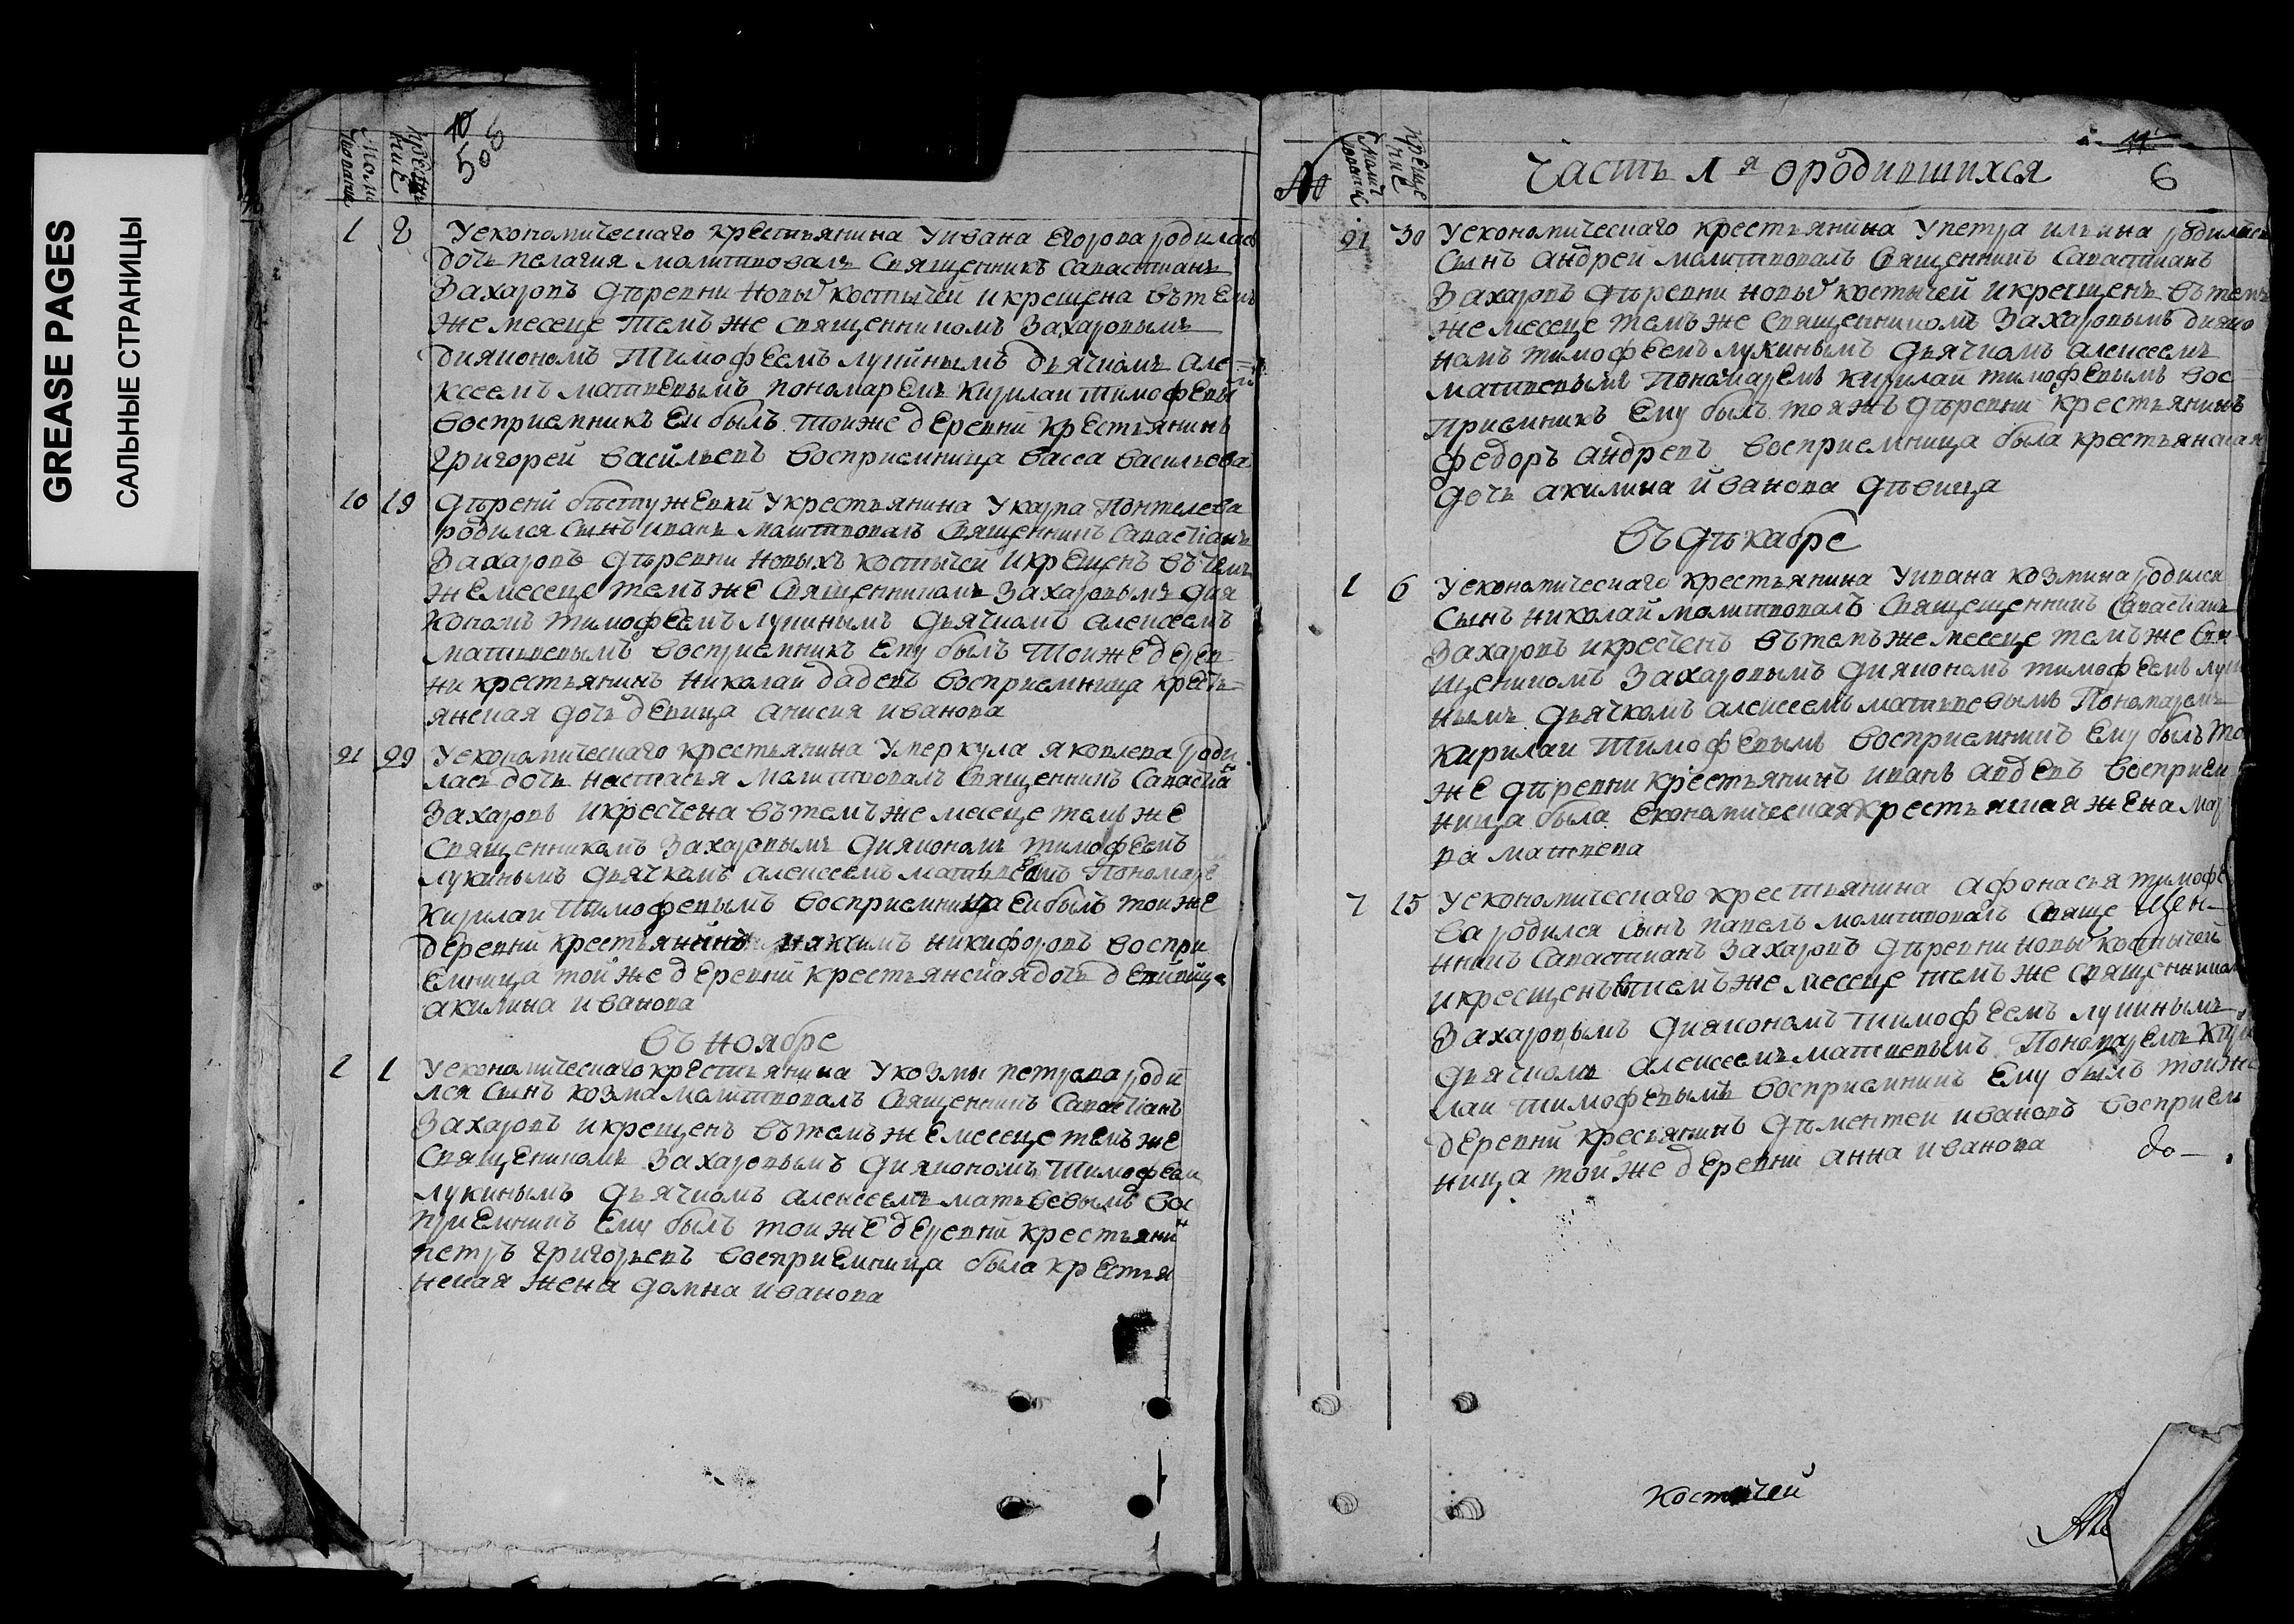 GREASE PAGES
САЛЬНЫЕ СТРАНИЦЫ
Моли
твование
Креще
ние
10
508
1 8 У економическаго крестьянина у ивана Егорова родилась
дочь пелагия молитвовалъ Священникъ савастианъ
Захаровъ дѣревни новы костычей и крещена въ темъ
же месеце темъ же священникомъ Захаровымъ
диякономъ Тимофеемъ лукинымъ дьячкомъ але
ксеемъ матвевымъ пономаремъ Кирилаи тимофевы
восприемникъ еи былъ тоиже деревни крестьянинъ
Григорей васильевъ восприемница васса васильева
10 19 дѣревни бѣстужевки у крестьянина у карпа понтелева
родился сынъ иванъ молитвовалъ священникъ савастianъ
Захаровъ дѣревни новыхъ костычей и крещенъ въ темъ
же месеце темъ же священникомъ Захаровымъ дия
кономъ тимофеемъ лукинымъ дьячкомъ алексеемъ
матвевымъ восприемникъ ему былъ тоиже дерев
ни крестьянинъ николаи дадевъ восприемница кресть
янская дочь девица анисия иванова
21 29 У економическаго крестьянина у меркула яковлева роди
лась дочь настасья молитвовалъ священникъ савастиа
Захаровъ и кресчена въ темъ же месеце темъ же
священникомъ Захаровымъ дияконом тимофеемъ
лукинымъ дьячкомъ алексеемъ матвевымъ пономаре
Кирилаи тимофевымъ восприемника еи былъ тоиже
деревни крестьянинъ максимъ никифоровъ воспри
емница той же деревни крестьянская дочь девица
акилина иванова
въ ноябре
1 1 У економическаго крестьянина у козмы петрова роди
лся сынъ козма молитвовалъ священникъ савастianъ
Захаровъ и крещенъ въ темъ же месеце темъ же
священикомъ Захаровымъ дияконом тимофеем
лукинымъ дьячкомъ алексеемъ матвевымъ вос
приемникъ ему былъ тои же деревни крестьянин
петръ григорьевъ восприемница была крестья
нская жена домна иванова
Моли
твование
Креще
ние
Часть 1я о родившихся
11
6
21 30 У економическаго крестьянина у петра ильина родился
сынъ андреи молитвовалъ священникъ савастианъ
Захаровъ дѣревни новы костычей и крещенъ въ темъ
же месеце темъ же священникомъ Захаровымъ дияко
номъ тимофеемъ лукинымъ дьячкомъ алексеемъ
матвевымъ пономаремъ кирилаи тимофевымъ вос
приемникъ ему былъ тояжъ дѣревни крестьянинъ
федоръ андревъ восприемница была крестьянская
дочь акилина иванова дѣвица
въ дѣкабре
1 6 У економическаго крестьянина у ивана козмина родился
сынъ николай молитвовалъ Священникъ савастianъ
Захаровъ и кресченъ въ темъ же месеце темъ же свя
щеникомъ Захаровымъ дияконом тимофеемъ луки
нымъ дьячкомъ алексеемъ матвевымъ пономаремъ
Кирилаи тимофевымъ восприемникъ ему былъ то
же дѣревни крестьянинъ иванъ авдевъ восприем
ница была економическая крестьянская жена мар
ва матвева
7 15 У економическаго крестьянина афонасья тимофе
ва родился сынъ павелъ молитвовалъ священ
никъ савастианъ захаровъ дѣревни новы костычей
и кресщенъ в темъ же месеце темъ же священником
Захаровымъ дияконом тимофеемъ лукинымъ
дьячкомъ алексеемъ матвевымъ пономаремъ Кири
лаи тимофевымъ восприемникъ ему былъ тоиже
деревни кресьянинъ дѣментеи ивановъ восприем
ница той же деревни анна иванова
до
костычей